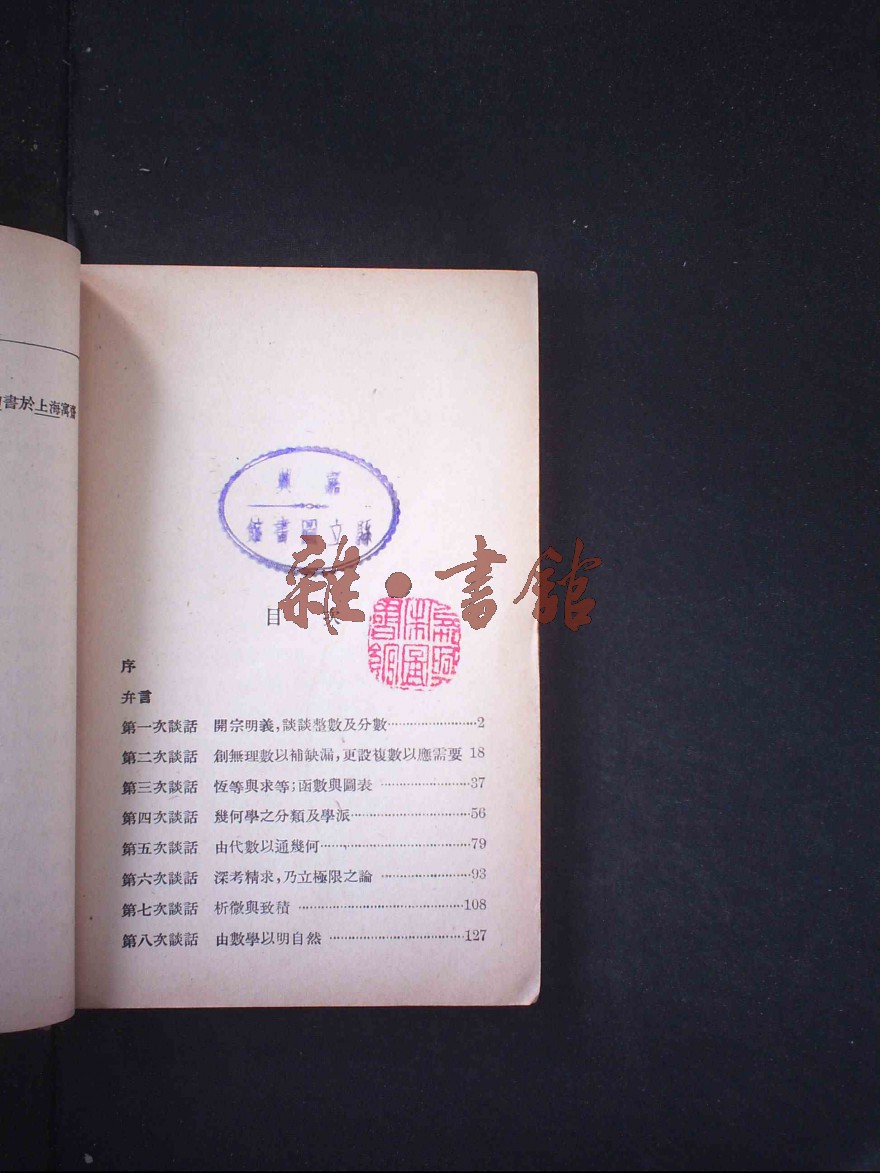 書於上海寓齋
嘉興
縣立圖書館
雜·書館
目次
序
弁言
第一次談話 開宗明義,談談整數及分數………………………2
第二次談話 創無理數以補缺漏,更設複數以應需要 18
第三次談話 恆等與求等;函數與圖表………………………37
第四次談話 幾何學之分類及學派………………………56
第五次談話 由代數以通幾何………………………79
第六次談話 深考精求,乃立極限之論………………………93
第七次談話 析微與致積………………………108
第八次談話 由數學以明自然………………………127